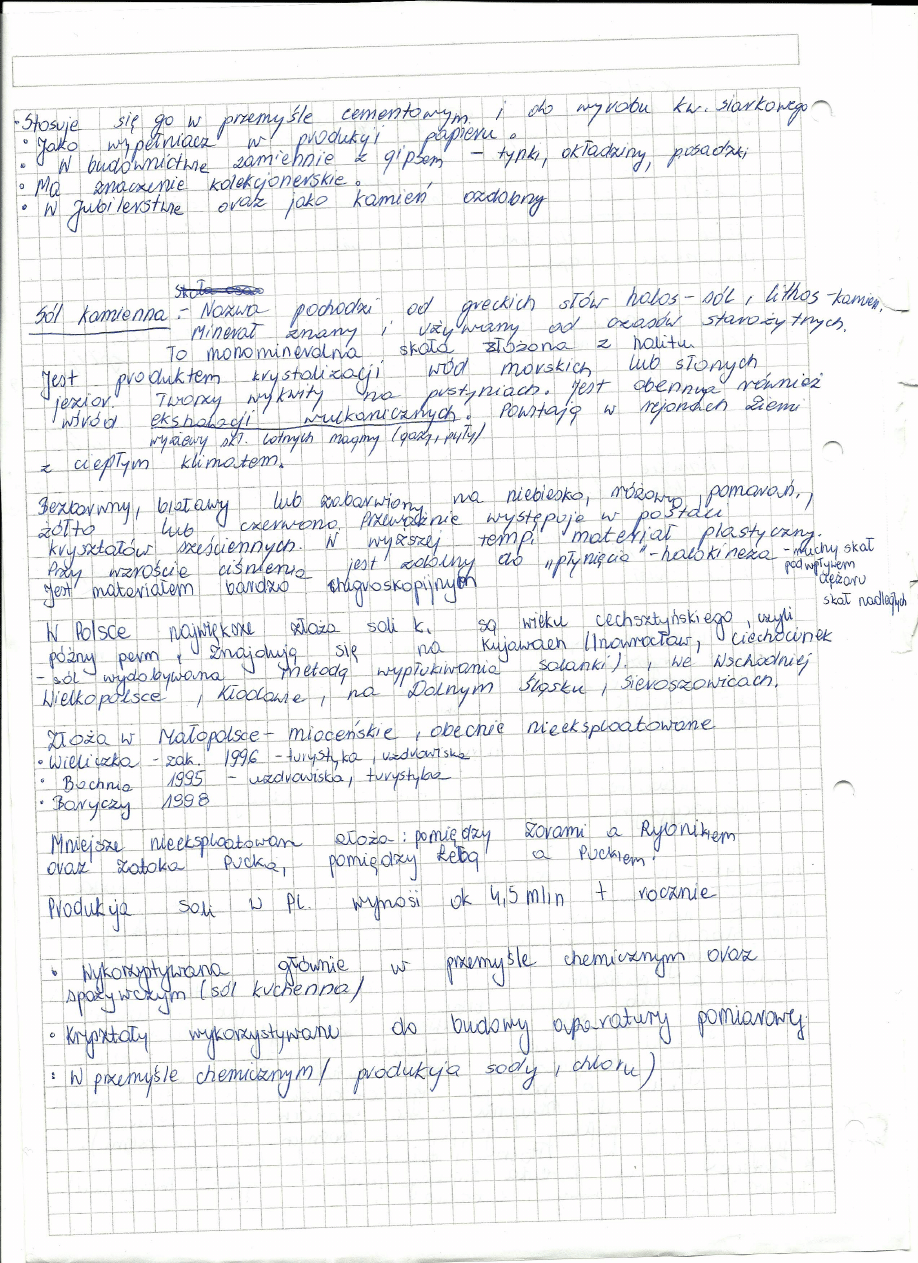 • Stosuje się go w przemyśle cementowym i do wyrobu kw. siarkowego
• Jako wypełniacz w produkcji papieru.
• W budownictwie zamiennie z gipsem – tynki, okładziny, posadzki
• Ma znaczenie kolekcjonerskie.
• W jubilerstwie oraz jako kamień ozdobny
Sól kamienna – Nazwa pochodzi od greckich słów halos – sól, lithos – kamień.
Minerał znany i używany od czasów starożytnych.
To monomineralna skała złożona z halitu
Jest produktem krystalizacji wód morskich lub słonych
jezior. Tworzy wykwity na pustyniach. Jest obecny również
wśród ekshalacji wulkanicznych. Powstają w rejonach Ziemi
wyziewy skł. lotnych magmy (gazy, pyły)
z ciepłym klimatem.
Bezbarwny, białawy lub zabarwiony na niebiesko, różowo, pomarań.,
żółto lub czerwono. Przeważnie występuje w postaci
kryształów sześciennych. W wyższej temp. materiał plastyczny.
Przy wzroście ciśnienia jest zdolny do "płynięcia" – halokineza – ruchy skał
pod wpływem
ciężaru
skał nadległych
Jest materiałem bardzo higroskopijnym
W Polsce największe złoża soli k. są wieku cechsztyńskiego, czyli
późny perm. Znajdują się na Kujawach (Inowrocław, Ciechocinek
– sól wydobywana metodą wypłukiwania solanki), we Wschodniej
Wielkopolsce, Kłodawie, na Dolnym Śląsku, Sieroszowicach.
Złoża w Małopolsce – mioceńskie, obecnie nieeksploatowane
• Wieliczka – zak. 1996 – turystyka, uzdrowiska
• Bochnia 1995 – uzdrowiska, turystyka
• Baryczy 1998
Mniejsze nieeksploatowan złoża: pomiędzy Żorami a Rybnikiem
oraz Zatoka Pucka, pomiędzy Łebą a Puckiem.
Produkcja soli w PL. wynosi ok 4,5 mln t rocznie
• Wykorzystywana głównie w przemyśle chemicznym oraz
spożywczym (sól kuchenna)
• Kryształy wykorzystywane do budowy aparatury pomiarowej
• W przemyśle chemicznym (produkcja sody, chloru)